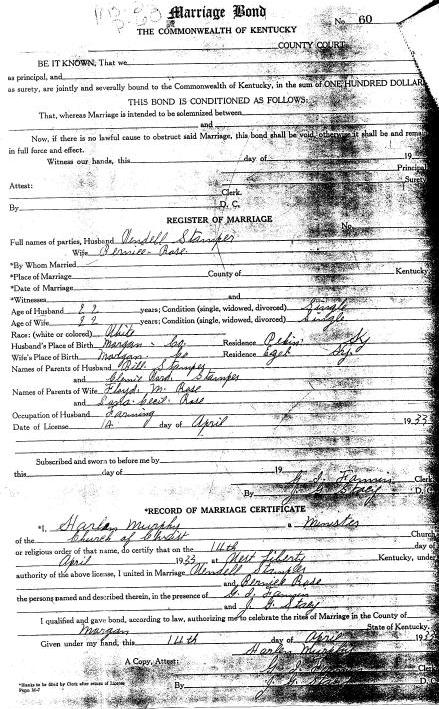 Marriage Bond
No 60
THE COMMONWEALTH OF KENTUCKY
COUNTY COURT
BE IT KNOWN, That we
as principal, and
as surety, are jointly and severally bound to the Commonwealth of Kentucky, in the sum of ONE HUNDRED DOLLAR
THIS BOND IS CONDITIONED AS FOLLOWS:
That, whereas Marriage is intended to be solemnized between
and
Now, if there is no lawful cause to obstruct said Marriage, this bond shall be void, otherwise it shall be and remai
in full force and effect.
Witness our hands, this day of 19
Principal
Surety
Attest:
Clerk.
By D. C.
REGISTER OF MARRIAGE
No.
Full names of parties, Husband Wendell Stamper
Wife Bernice Rose
*By Whom Married
*Place of Marriage County of Kentucky
*Date of Marriage
*Witnesses and
Age of Husband 22 years; Condition (single, widowed, divorced) Single
Age of Wife 22 years; Condition (single, widowed, divorced) Single
Race: (white or colored) White
Husband's Place of Birth Morgan Co. Residence Pekin Ky
Wife's Place of Birth Morgan Co Residence Ezel Ky.
Names of Parents of Husband Bill Stamper
and Stamper
Names of Parents of Wife Floyd M. Rose
and Cecil Rose
Occupation of Husband Farming
Date of License 14 day of April 1933
Subscribed and sworn to before me by
this day of 19
Clerk
By J. G. Stacy D. C.
*RECORD OF MARRIAGE CERTIFICATE
*I, Harlan Murphy a Minister
of the Church of Christ Church
or religious order of that name, do certify that on the 14th day of
April 1933 at West Liberty Kentucky, under
authority of the above license, I united in Marriage Wendell Stamper
and Bernice Rose
the persons named and described therein, in the presence of
and J. G. Stacy
I qualified and gave bond, according to law, authorizing me to celebrate the rites of Marriage in the County of
Morgan State of Kentucky.
Given under my hand, this 14th day of April 1933
Harlan Murphy
A Copy, Attest: Clerk
By J. G. Stacy D. C.
*Blanks to be filled by Clerk after return of License